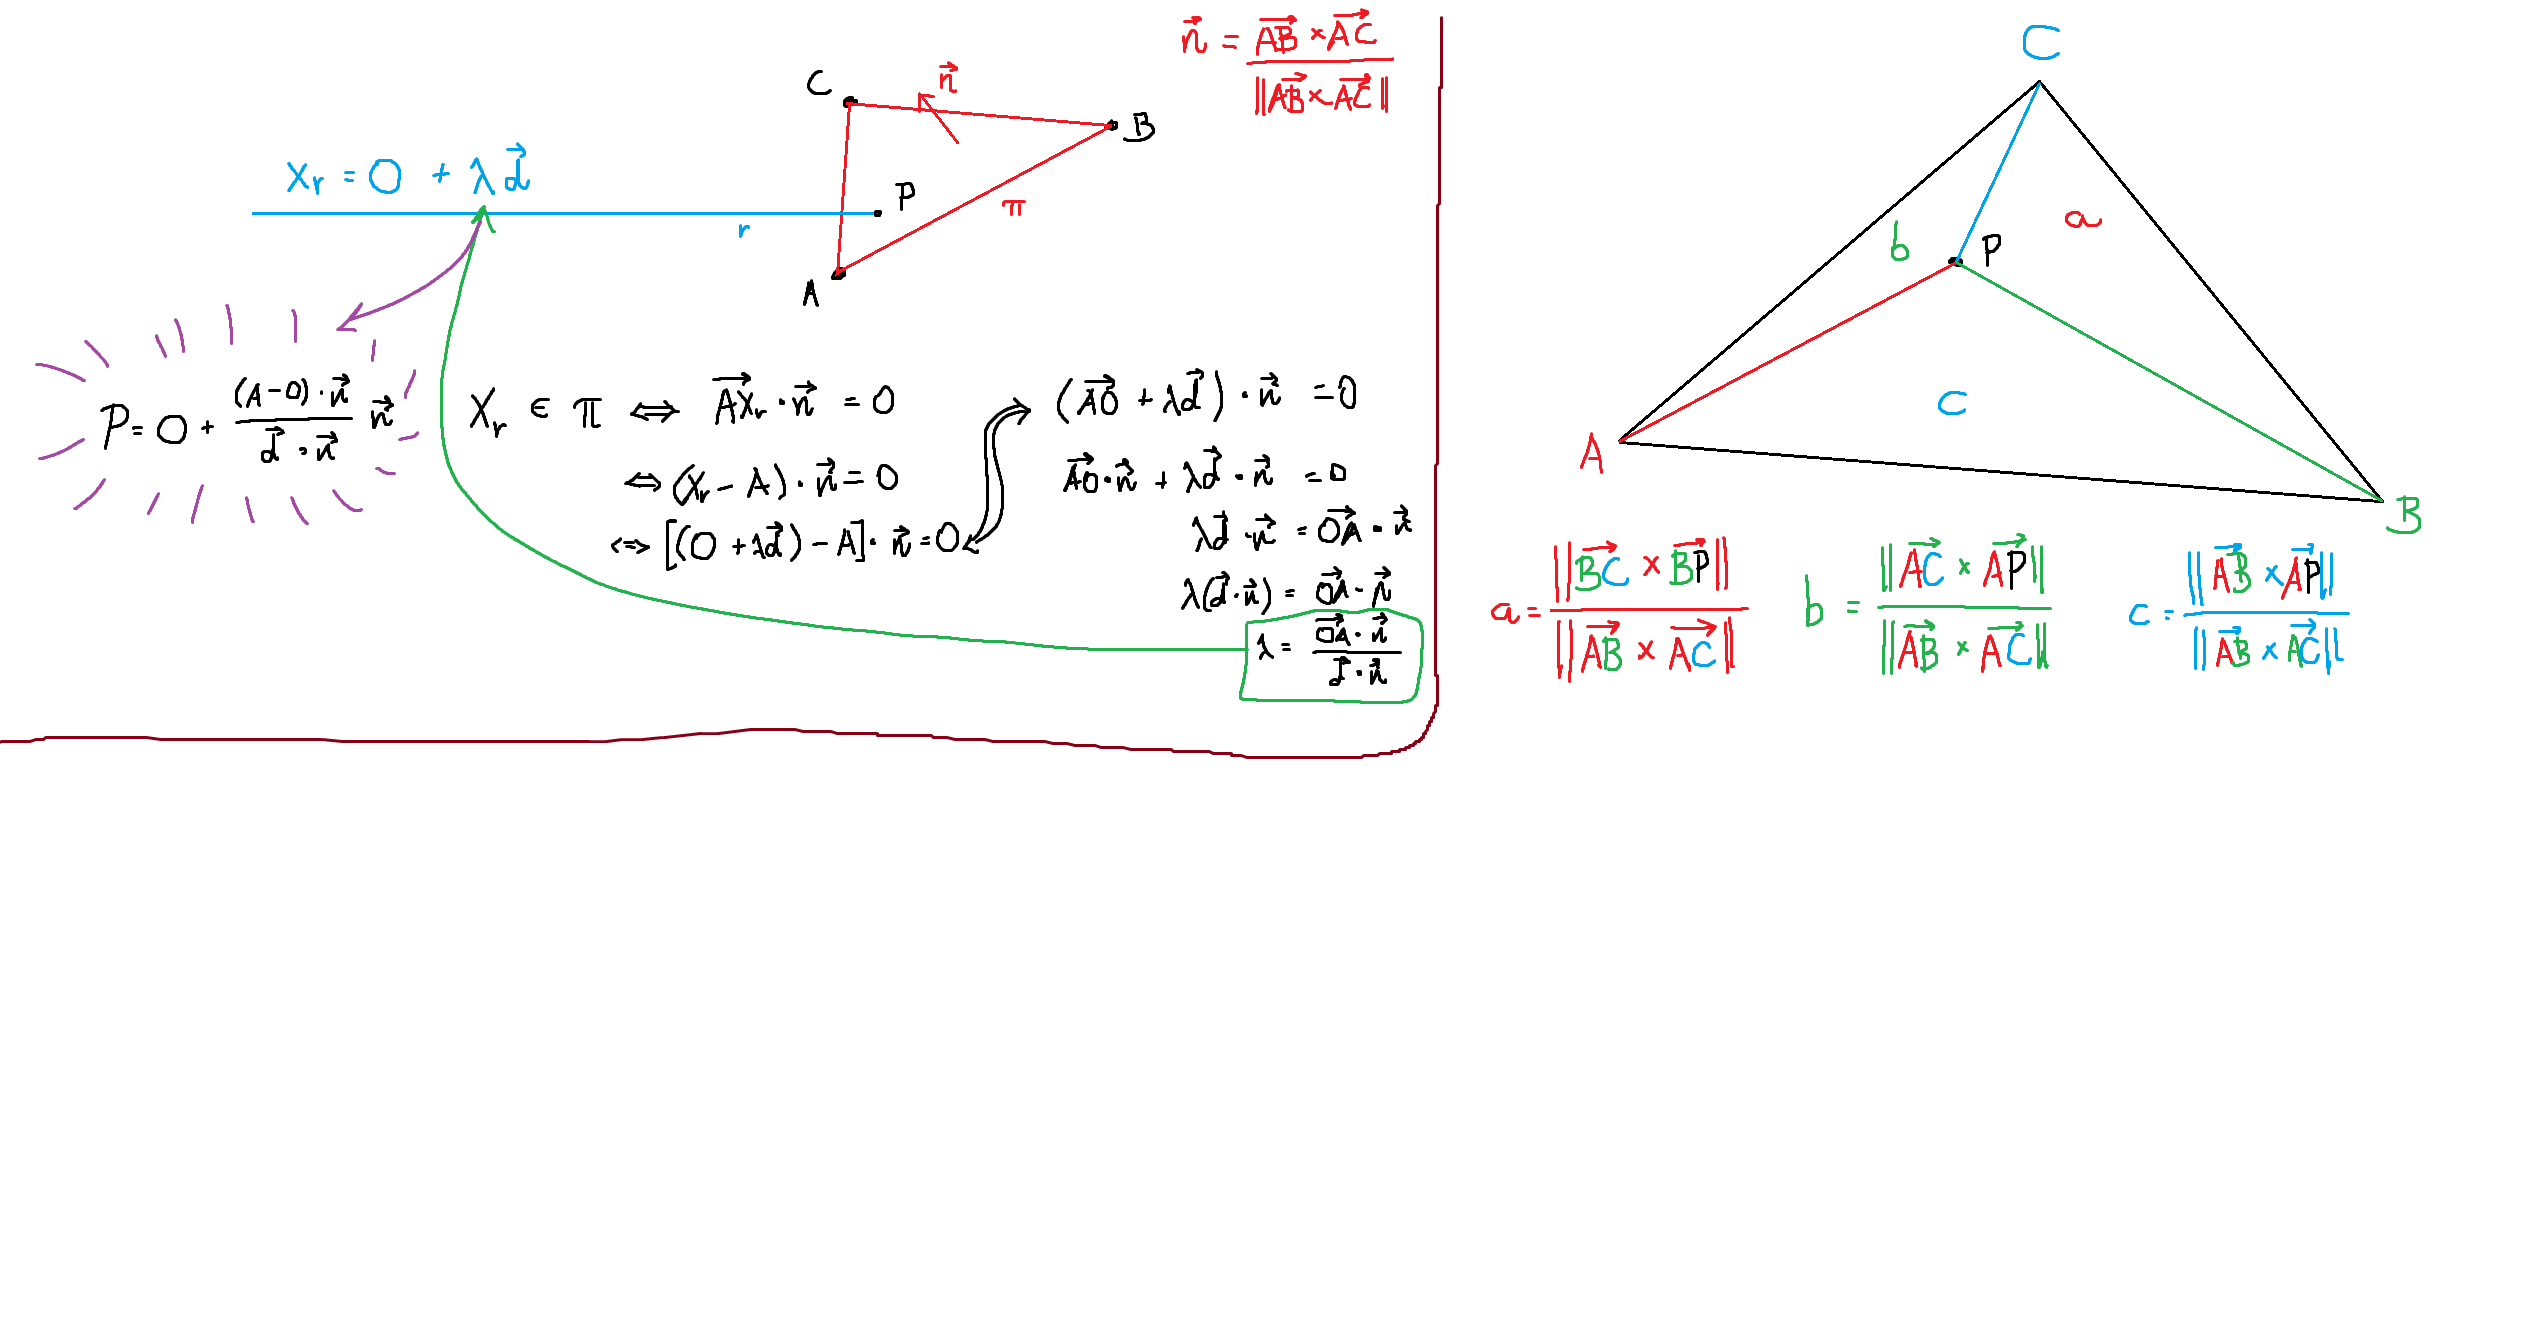 n⃗ = (AB⃗ × AC⃗) / ‖AB⃗ × AC⃗‖
C
n⃗
B
P
π
A
r
Xr = O + λd⃗
P = O + ((A-O)·n⃗ / d⃗·n⃗) n⃗
Xr ∈ π ⟺ AXr⃗ · n⃗ = 0
⟺ (Xr - A) · n⃗ = 0
⟺ [(O + λd⃗) - A] · n⃗ = 0
(AO⃗ + λd⃗) · n⃗ = 0
AO⃗·n⃗ + λd⃗·n⃗ = 0
λd⃗·n⃗ = OA⃗·n⃗
λ(d⃗·n⃗) = OA⃗·n⃗
λ = OA⃗·n⃗ / d⃗·n⃗
C
b
P
a
c
A
B
a = ‖BC⃗ × BP⃗‖ / ‖AB⃗ × AC⃗‖
b = ‖AC⃗ × AP⃗‖ / ‖AB⃗ × AC⃗‖
c = ‖AB⃗ × AP⃗‖ / ‖AB⃗ × AC⃗‖